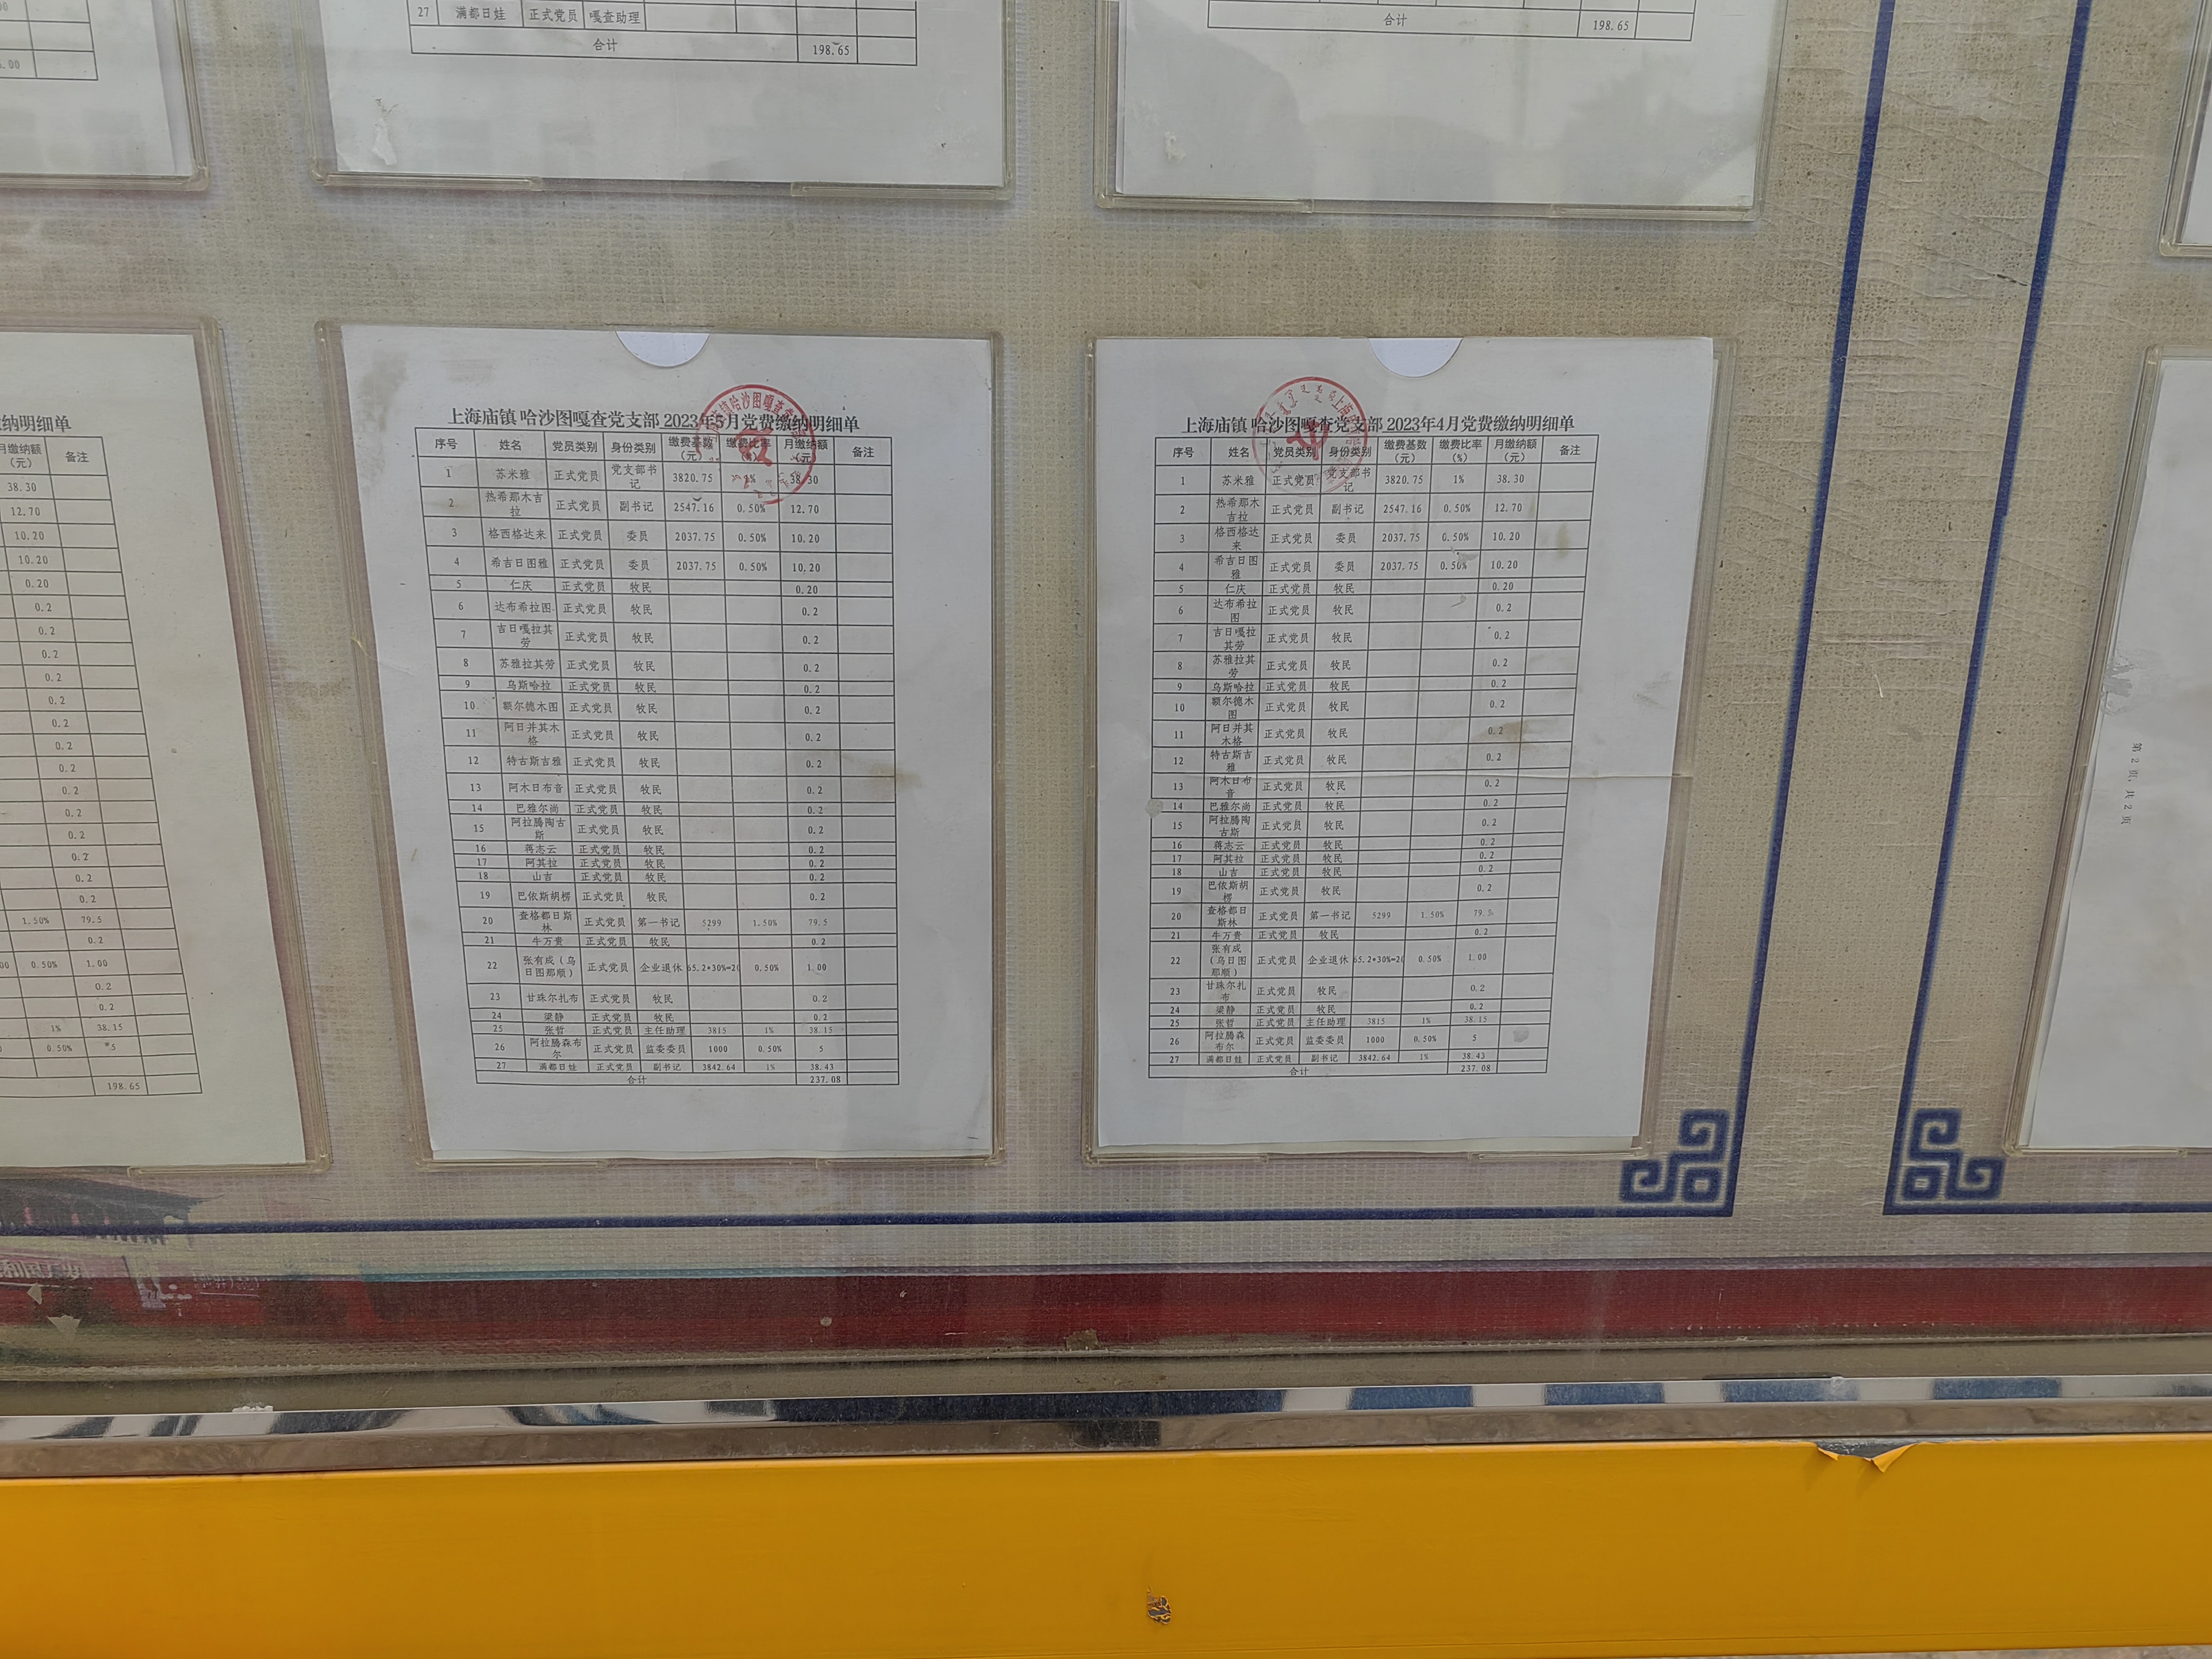 27 满都日娃 正式党员 嘎查助理
合计 198.65
合计 198.65
.00
纳明细单
月缴纳额（元） 备注
38.30
12.70
10.20
10.20
0.20
0.2
0.2
0.2
0.2
0.2
0.2
0.2
0.2
0.2
0.2
0.2
0.2
0.2
0.2
1.50% 79.5
0.2
00 0.50% 1.00
0.2
0.2
1% 38.15
0.50% *5
198.65
上海庙镇 哈沙图嘎查党支部 2023年5月党费缴纳明细单
序号 姓名 党员类别 身份类别 缴费基数（元） 缴费比率（%） 月缴纳额（元 备注
1 苏米雅 正式党员 党支部书记 3820.75 1% 38.30
2 热希那木吉拉 正式党员 副书记 2547.16 0.50% 12.70
3 格西格达来 正式党员 委员 2037.75 0.50% 10.20
4 希吉日图雅 正式党员 委员 2037.75 0.50% 10.20
5 仁庆 正式党员 牧民 0.20
6 达布希拉图 正式党员 牧民 0.2
7 吉日嘎拉其劳 正式党员 牧民 0.2
8 苏雅拉其劳 正式党员 牧民 0.2
9 乌斯哈拉 正式党员 牧民 0.2
10 额尔德木图 正式党员 牧民 0.2
11 阿日并其木格 正式党员 牧民 0.2
12 特古斯吉雅 正式党员 牧民 0.2
13 阿木日布音 正式党员 牧民 0.2
14 巴雅尔尚 正式党员 牧民 0.2
15 阿拉腾陶古斯 正式党员 牧民 0.2
16 蒋志云 正式党员 牧民 0.2
17 阿其拉 正式党员 牧民 0.2
18 山吉 正式党员 牧民 0.2
19 巴依斯胡楞 正式党员 牧民 0.2
20 查格都日斯林 正式党员 第一书记 5299 1.50% 79.5
21 牛万贵 正式党员 牧民 0.2
22 张有成（乌日图那顺） 正式党员 企业退休 65.2*30%=20 0.50% 1.00
23 甘珠尔扎布 正式党员 牧民 0.2
24 梁静 正式党员 牧民 0.2
25 张哲 正式党员 主任助理 3815 1% 38.15
26 阿拉腾森布尔 正式党员 监委委员 1000 0.50% 5
27 满都日娃 正式党员 副书记 3842.64 1% 38.43
合计 237.08
上海庙镇 哈沙图嘎查党支部 2023年4月党费缴纳明细单
序号 姓名 党员类别 身份类别 缴费基数（元） 缴费比率（%） 月缴纳额（元） 备注
1 苏米雅 正式党员 党支部书记 3820.75 1% 38.30
2 热希那木吉拉 正式党员 副书记 2547.16 0.50% 12.70
3 格西格达来 正式党员 委员 2037.75 0.50% 10.20
4 希吉日图雅 正式党员 委员 2037.75 0.50% 10.20
5 仁庆 正式党员 牧民 0.20
6 达布希拉图 正式党员 牧民 0.2
7 吉日嘎拉其劳 正式党员 牧民 0.2
8 苏雅拉其劳 正式党员 牧民 0.2
9 乌斯哈拉 正式党员 牧民 0.2
10 额尔德木图 正式党员 牧民 0.2
11 阿日并其木格 正式党员 牧民 0.2
12 特古斯吉雅 正式党员 牧民 0.2
13 阿木日布音 正式党员 牧民 0.2
14 巴雅尔尚 正式党员 牧民 0.2
15 阿拉腾陶古斯 正式党员 牧民 0.2
16 蒋志云 正式党员 牧民 0.2
17 阿其拉 正式党员 牧民 0.2
18 山吉 正式党员 牧民 0.2
19 巴依斯胡楞 正式党员 牧民 0.2
20 查格都日斯林 正式党员 第一书记 5299 1.50% 79.5
21 牛万贵 正式党员 牧民 0.2
22 张有成（乌日图那顺） 正式党员 企业退休 65.2*30%=20 0.50% 1.00
23 甘珠尔扎布 正式党员 牧民 0.2
24 梁静 正式党员 牧民 0.2
25 张哲 正式党员 主任助理 3815 1% 38.15
26 阿拉腾森布尔 正式党员 监委委员 1000 0.50% 5
27 满都日娃 正式党员 副书记 3842.64 1% 38.43
合计 237.08
第 2 页，共 2 页